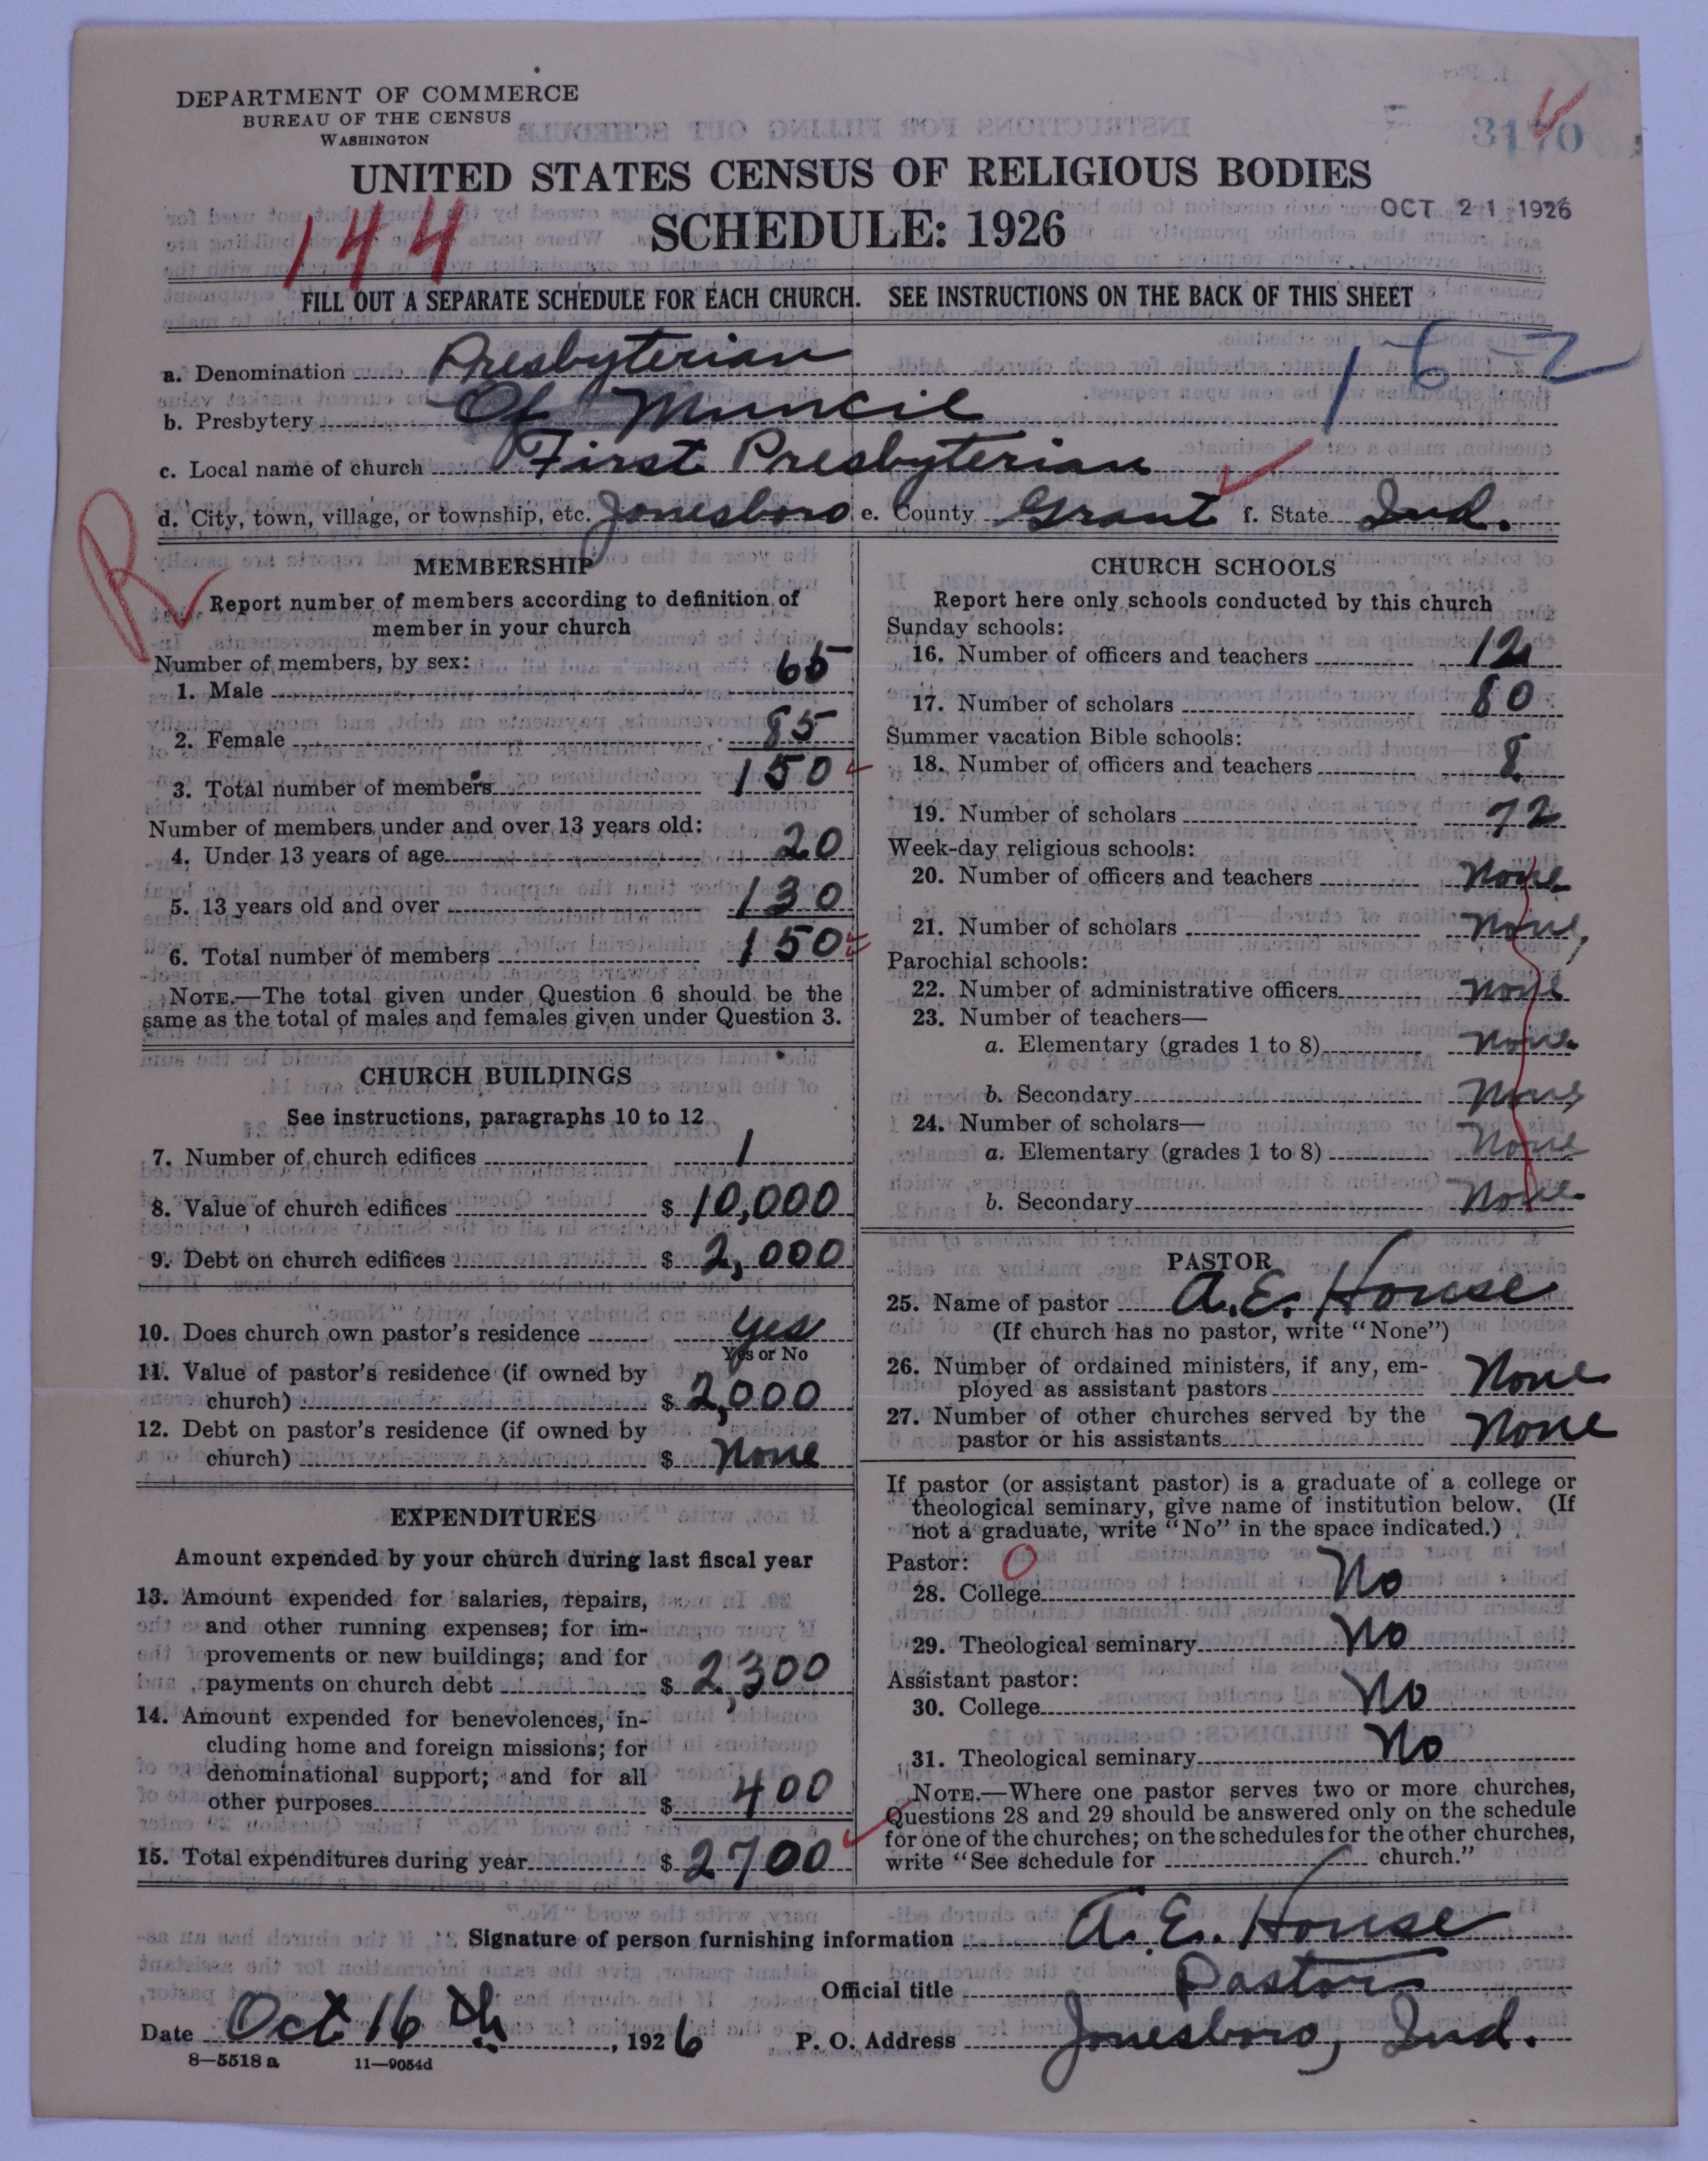 DEPARTMENT OF COMMERCE
BUREAU OF THE CENSUS
WASHINGTON
3170
UNITED STATES CENSUS OF RELIGIOUS BODIES
OCT 21 1926
144
SCHEDULE: 1926
FILL OUT A SEPARATE SCHEDULE FOR EACH CHURCH. SEE INSTRUCTIONS ON THE BACK OF THIS SHEET
162
a. Denomination Presbyterian
b. Presbytery Of Muncie
c. Local name of church First Presbyterian
d. City, town, village, or township, etc. Jonesboro e. County Grant f. State Ind.
R
MEMBERSHIP
Report number of members according to definition of
member in your church
Number of members, by sex:
1. Male 65
2. Female 85
3. Total number of members 150
Number of members under and over 13 years old:
4. Under 13 years of age 20
5. 13 years old and over 130
6. Total number of members 150
NOTE.—The total given under Question 6 should be the
same as the total of males and females given under Question 3.
CHURCH BUILDINGS
See instructions, paragraphs 10 to 12
7. Number of church edifices 1
8. Value of church edifices $ 10,000
9. Debt on church edifices $ 2,000
10. Does church own pastor's residence Yes
Yes or No
11. Value of pastor's residence (if owned by
church) $ 2,000
12. Debt on pastor's residence (if owned by
church) $ None
EXPENDITURES
Amount expended by your church during last fiscal year
13. Amount expended for salaries, repairs,
and other running expenses; for im-
provements or new buildings; and for
payments on church debt $ 2,300
14. Amount expended for benevolences, in-
cluding home and foreign missions; for
denominational support; and for all
other purposes $ 400
15. Total expenditures during year $ 2700
CHURCH SCHOOLS
Report here only schools conducted by this church
Sunday schools:
16. Number of officers and teachers 12
17. Number of scholars 80
Summer vacation Bible schools:
18. Number of officers and teachers 8
19. Number of scholars 72
Week-day religious schools:
20. Number of officers and teachers None
21. Number of scholars None
Parochial schools:
22. Number of administrative officers None
23. Number of teachers—
a. Elementary (grades 1 to 8) None
b. Secondary None
24. Number of scholars—
a. Elementary (grades 1 to 8) None
b. Secondary None
PASTOR
25. Name of pastor A. E. House
(If church has no pastor, write "None")
26. Number of ordained ministers, if any, em-
ployed as assistant pastors None
27. Number of other churches served by the
pastor or his assistants None
If pastor (or assistant pastor) is a graduate of a college or
theological seminary, give name of institution below. (If
not a graduate, write "No" in the space indicated.)
Pastor: O
28. College No
29. Theological seminary No
Assistant pastor:
30. College No
31. Theological seminary No
NOTE.—Where one pastor serves two or more churches,
Questions 28 and 29 should be answered only on the schedule
for one of the churches; on the schedules for the other churches,
write "See schedule for church."
Signature of person furnishing information A. E. House
Official title Pastor
Date Oct 16th, 1926 P. O. Address Jonesboro, Ind.
8—5518a 11—9054d